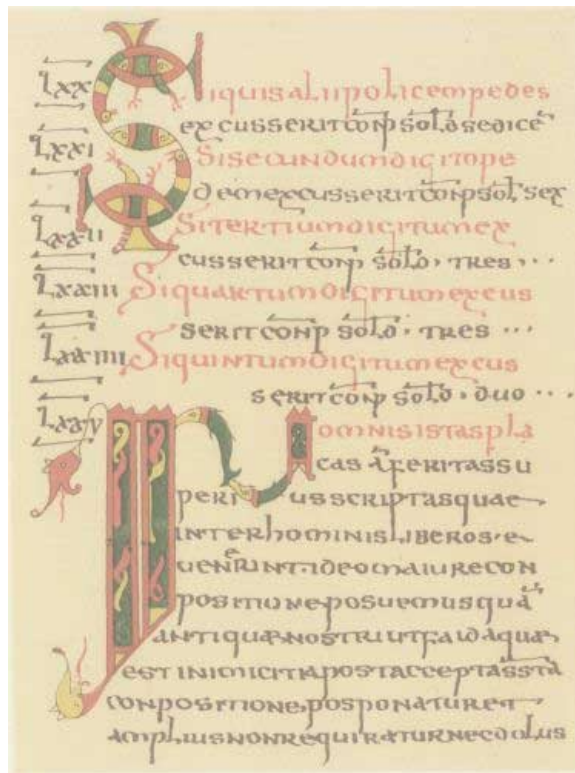 LXX Siquisaliipolicempedes
excusseritconp sol sedicē
LXXI Sisecundumdigitmpe
demexcusseritconp sol sex
LXXII Sitertiumdigitumex
cusseritconp solo · tres ···
LXXIII Siquartumdigitumexcus
seritconp solo · tres ···
LXXIIII Siquintumdigitumexcus
seritconp solo · duo ···
LXXV Inomnisistaspla
cas aferitassu
peri usscriptasquae
interhominisliberos·e
uenerint·ideomaiurecon
positioneposuemusquā
antiquaenostriutfaidaquae
est inimicitiapostacceptassta
conpositione,posponaturet
ampliusnonrequiraturnecdolus